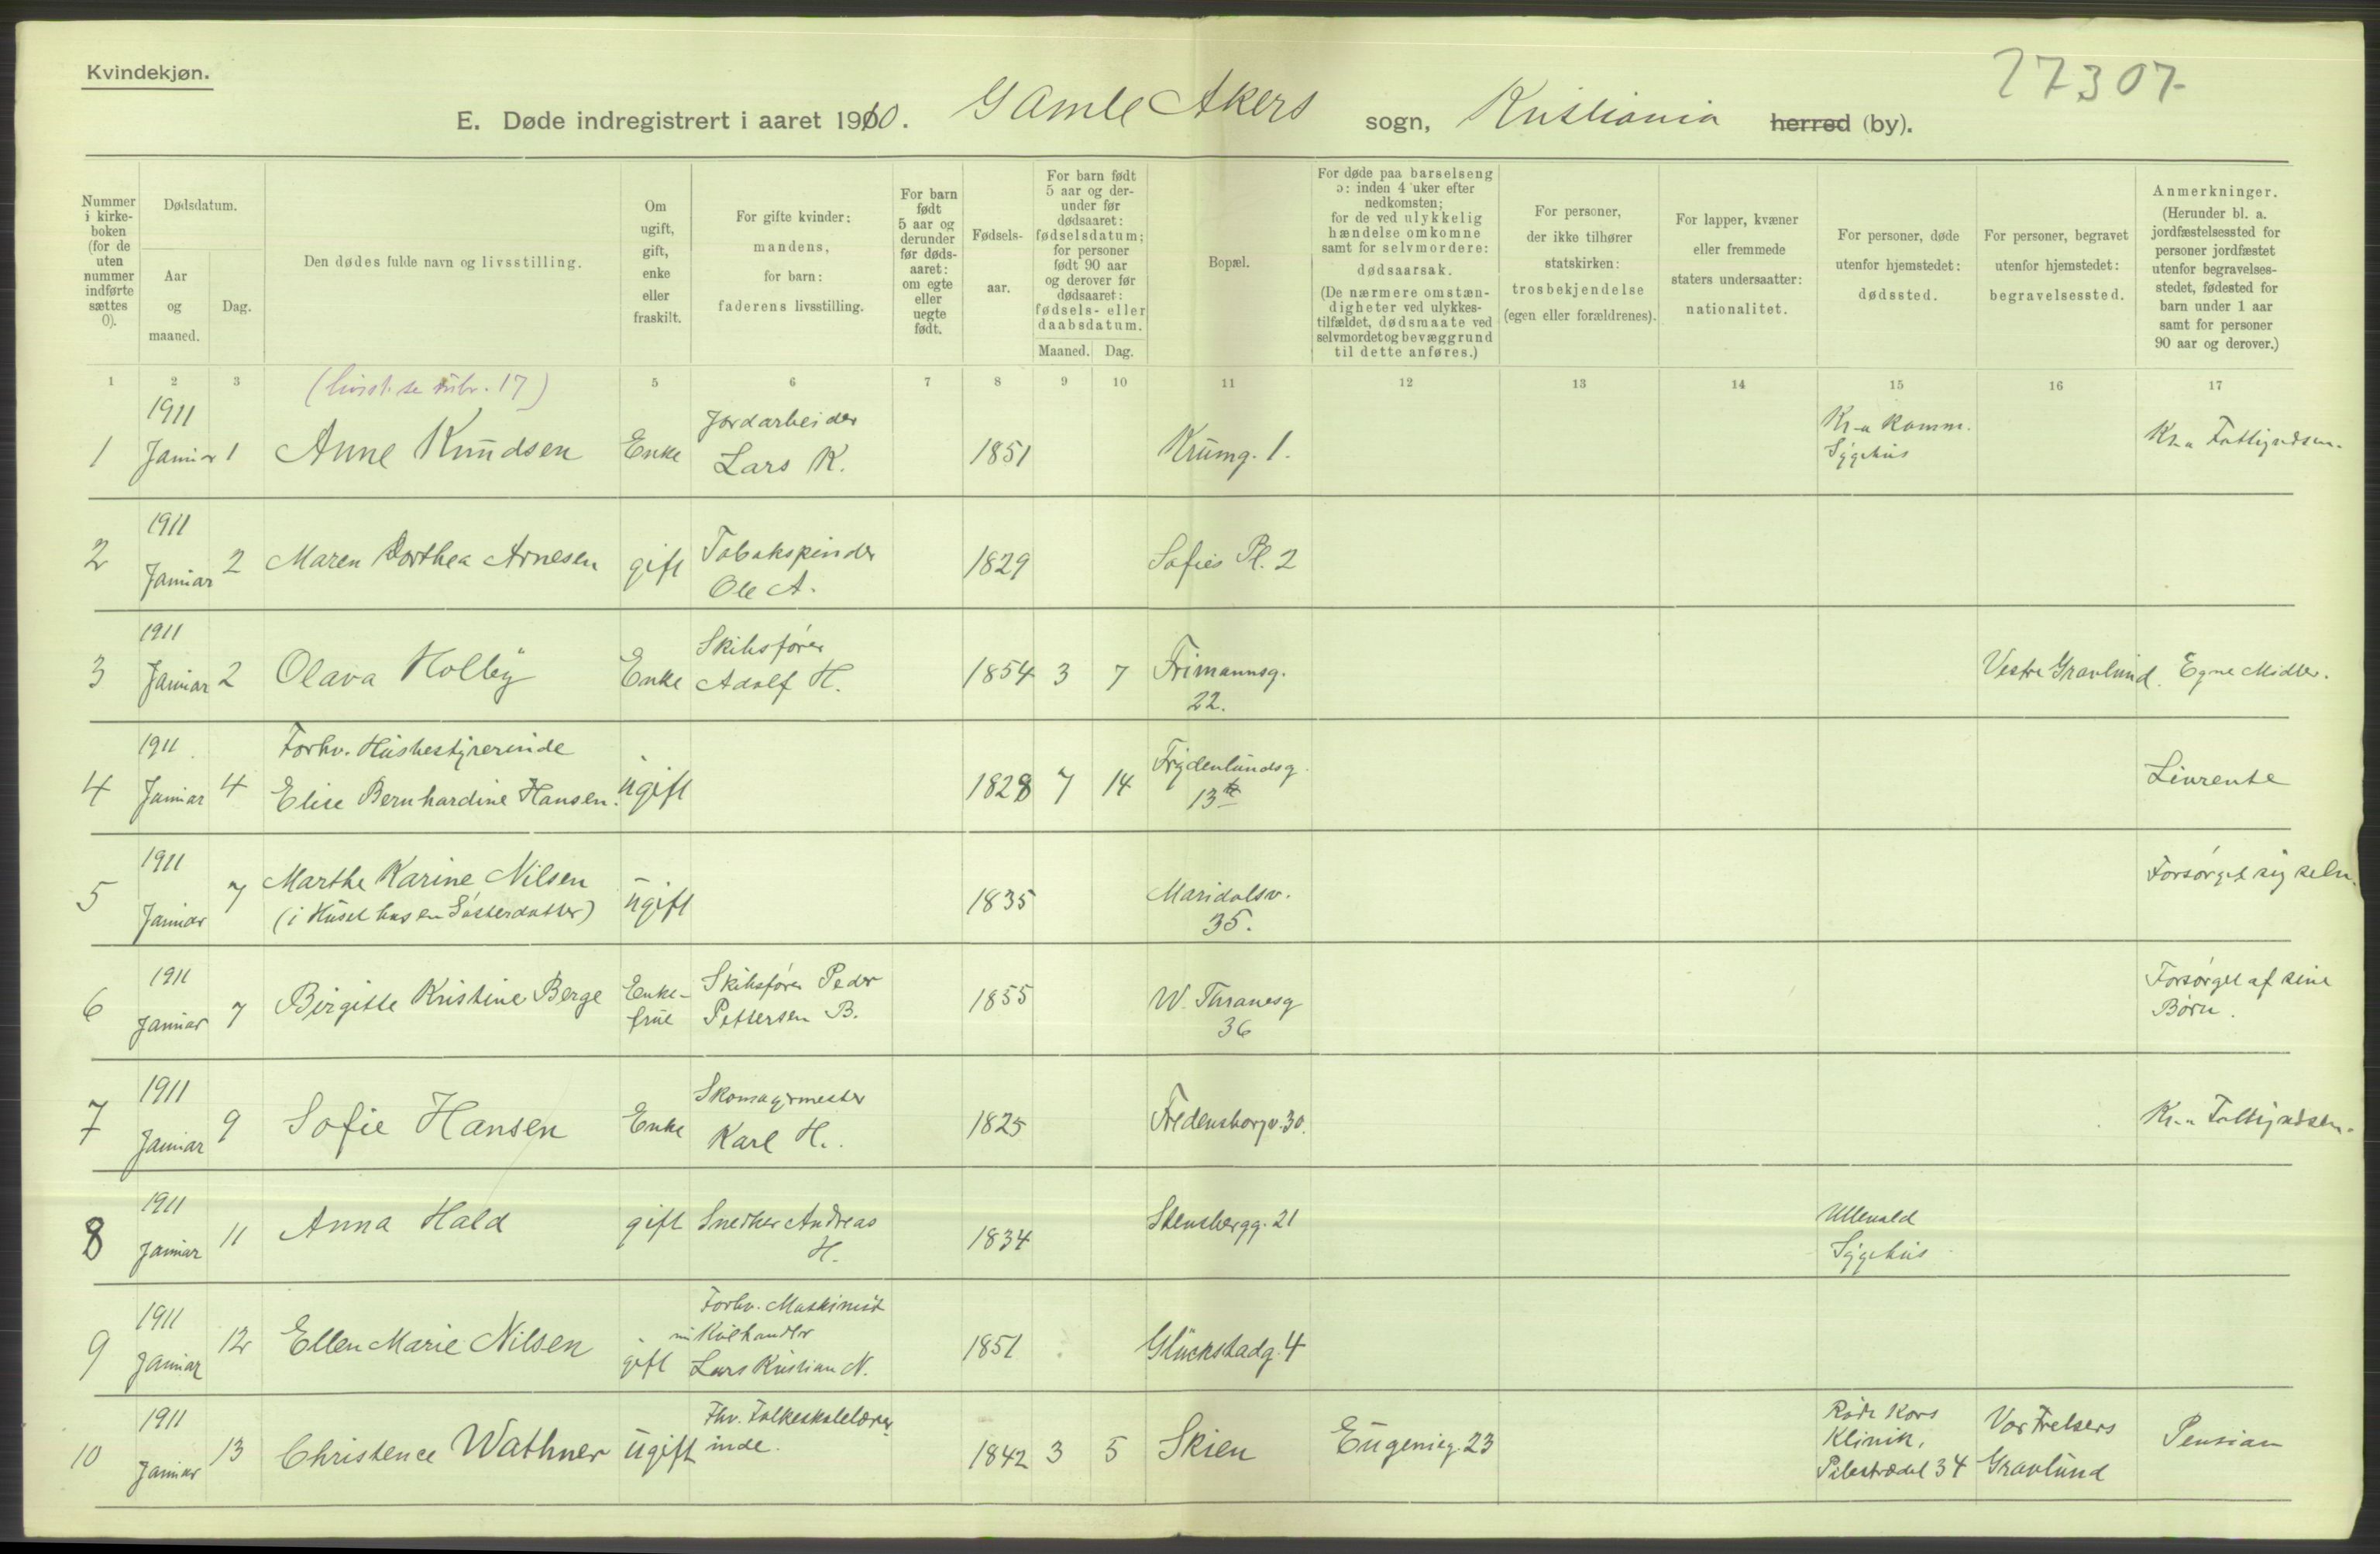 Kvindekjøn.
27307-
E. Døde indregistrert i aaret 1910. Gamle Akers sogn, Kristiania herred (by).
Nummer i kirkeboken (for de uten nummer indførte sættes 0).
Dødsdatum.
Aar og maaned.
Dag.
Den dødes fulde navn og livsstilling.
Om ugift, gift, enke eller fraskilt.
For gifte kvinder: mandens, for barn: faderens livsstilling.
For barn født 5 aar og derunder før dødsaaret: om egte eller uegte født.
Fødselsaar.
For barn født 5 aar og derunder før dødsaaret: fødselsdatum; for personer født 90 aar og derover før dødsaaret: fødsels- eller daabsdatum.
Maaned. Dag.
Bopæl.
For døde paa barselseng ɔ: inden 4 uker efter nedkomsten; for de ved ulykkelig hændelse omkomne samt for selvmordere: dødsaarsak. (De nærmere omstændigheter ved ulykkestilfældet, dødsmaate ved selvmordet og bevæggrund til dette anføres.)
For personer, der ikke tilhører statskirken: trosbekjendelse (egen eller forældrenes).
For lapper, kvæner eller fremmede staters undersaatter: nationalitet.
For personer, døde utenfor hjemstedet: dødssted.
For personer, begravet utenfor hjemstedet: begravelsessted.
Anmerkninger. (Herunder bl. a. jordfæstelsessted for personer jordfæstet utenfor begravelsesstedet, fødested for barn under 1 aar samt for personer 90 aar og derover.)
1 2 3 (livsst. se rubr. 17) 5 6 7 8 9 10 11 12 13 14 15 16 17
1911
1 Januar 1 Anne Knudsen Enke Jordarbeider Lars K. 1851 Krumg. 1. Kr-a Komm. Sygehus Kr.a Fattigvdsen.
1911
2 Januar 2 Maren Dorthea Arnesen gift Tobakspinder Ole A. 1829 Sofies Pl. 2
1911
3 Januar 2 Olava Holby Enke Skibsfører Adolf H. 1854 3 7 Frimannsg. 22. Vestre Gravlund. Egne Midler.
1911
4 Januar 4 Forhv. Husbestyrerinde Elise Bernhardine Hansen. ugift 1828 7 14 Frydenlundsg. 13 Livrente
1911
5 Januar 7 Marthe Karine Nilsen (i Huset hos en Søsterdatter) ugift 1835 Maridalsv. 35. Forsørget sig selv.
1911
6 Januar 7 Birgitte Kristine Berge Enkefrue Skibsfører Peder Pettersen B. 1855 W. Thranesg 36 Forsørget af sine Børn.
1911
7 Januar 9 Sofie Hansen Enke Skomagermester Karl H. 1825 Fredensborgv. 30. Kr.a Fattigvdsen.
1911
8 Januar 11 Anna Hald gift Snedker Andreas H. 1834 Stensbergg. 21 Ullevald Sygehus
1911
9 Januar 12 Ellen Marie Nilsen gift Forhv. Maskinist nu Kulhandler Lars Kristian N. 1851 Glückstadg. 4
1911
10 Januar 13 Christence Wathner ugift Fhv. Folkeskolelærerinde. 1842 3 5 Skien Eugenieg. 23 Røde Kors Klinik, Pilestrædet 34 Vor Frelsers Gravlund Pension